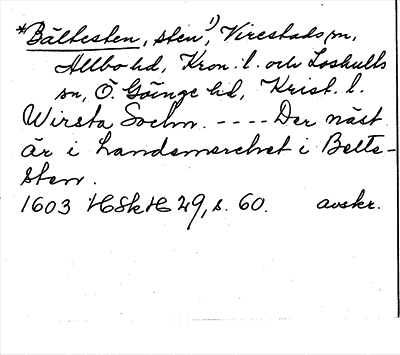 *Bältesten, sten¹), Virestads sn,
Allbo hd, Kron. l. och Loshults
sn, Ö. Göinge hd, Krist. l.
Wirsta Sochn. ---- Der näst
är i Landemerchet i Belte-
sten.
1603 HSkH 29, s. 60. avskr.